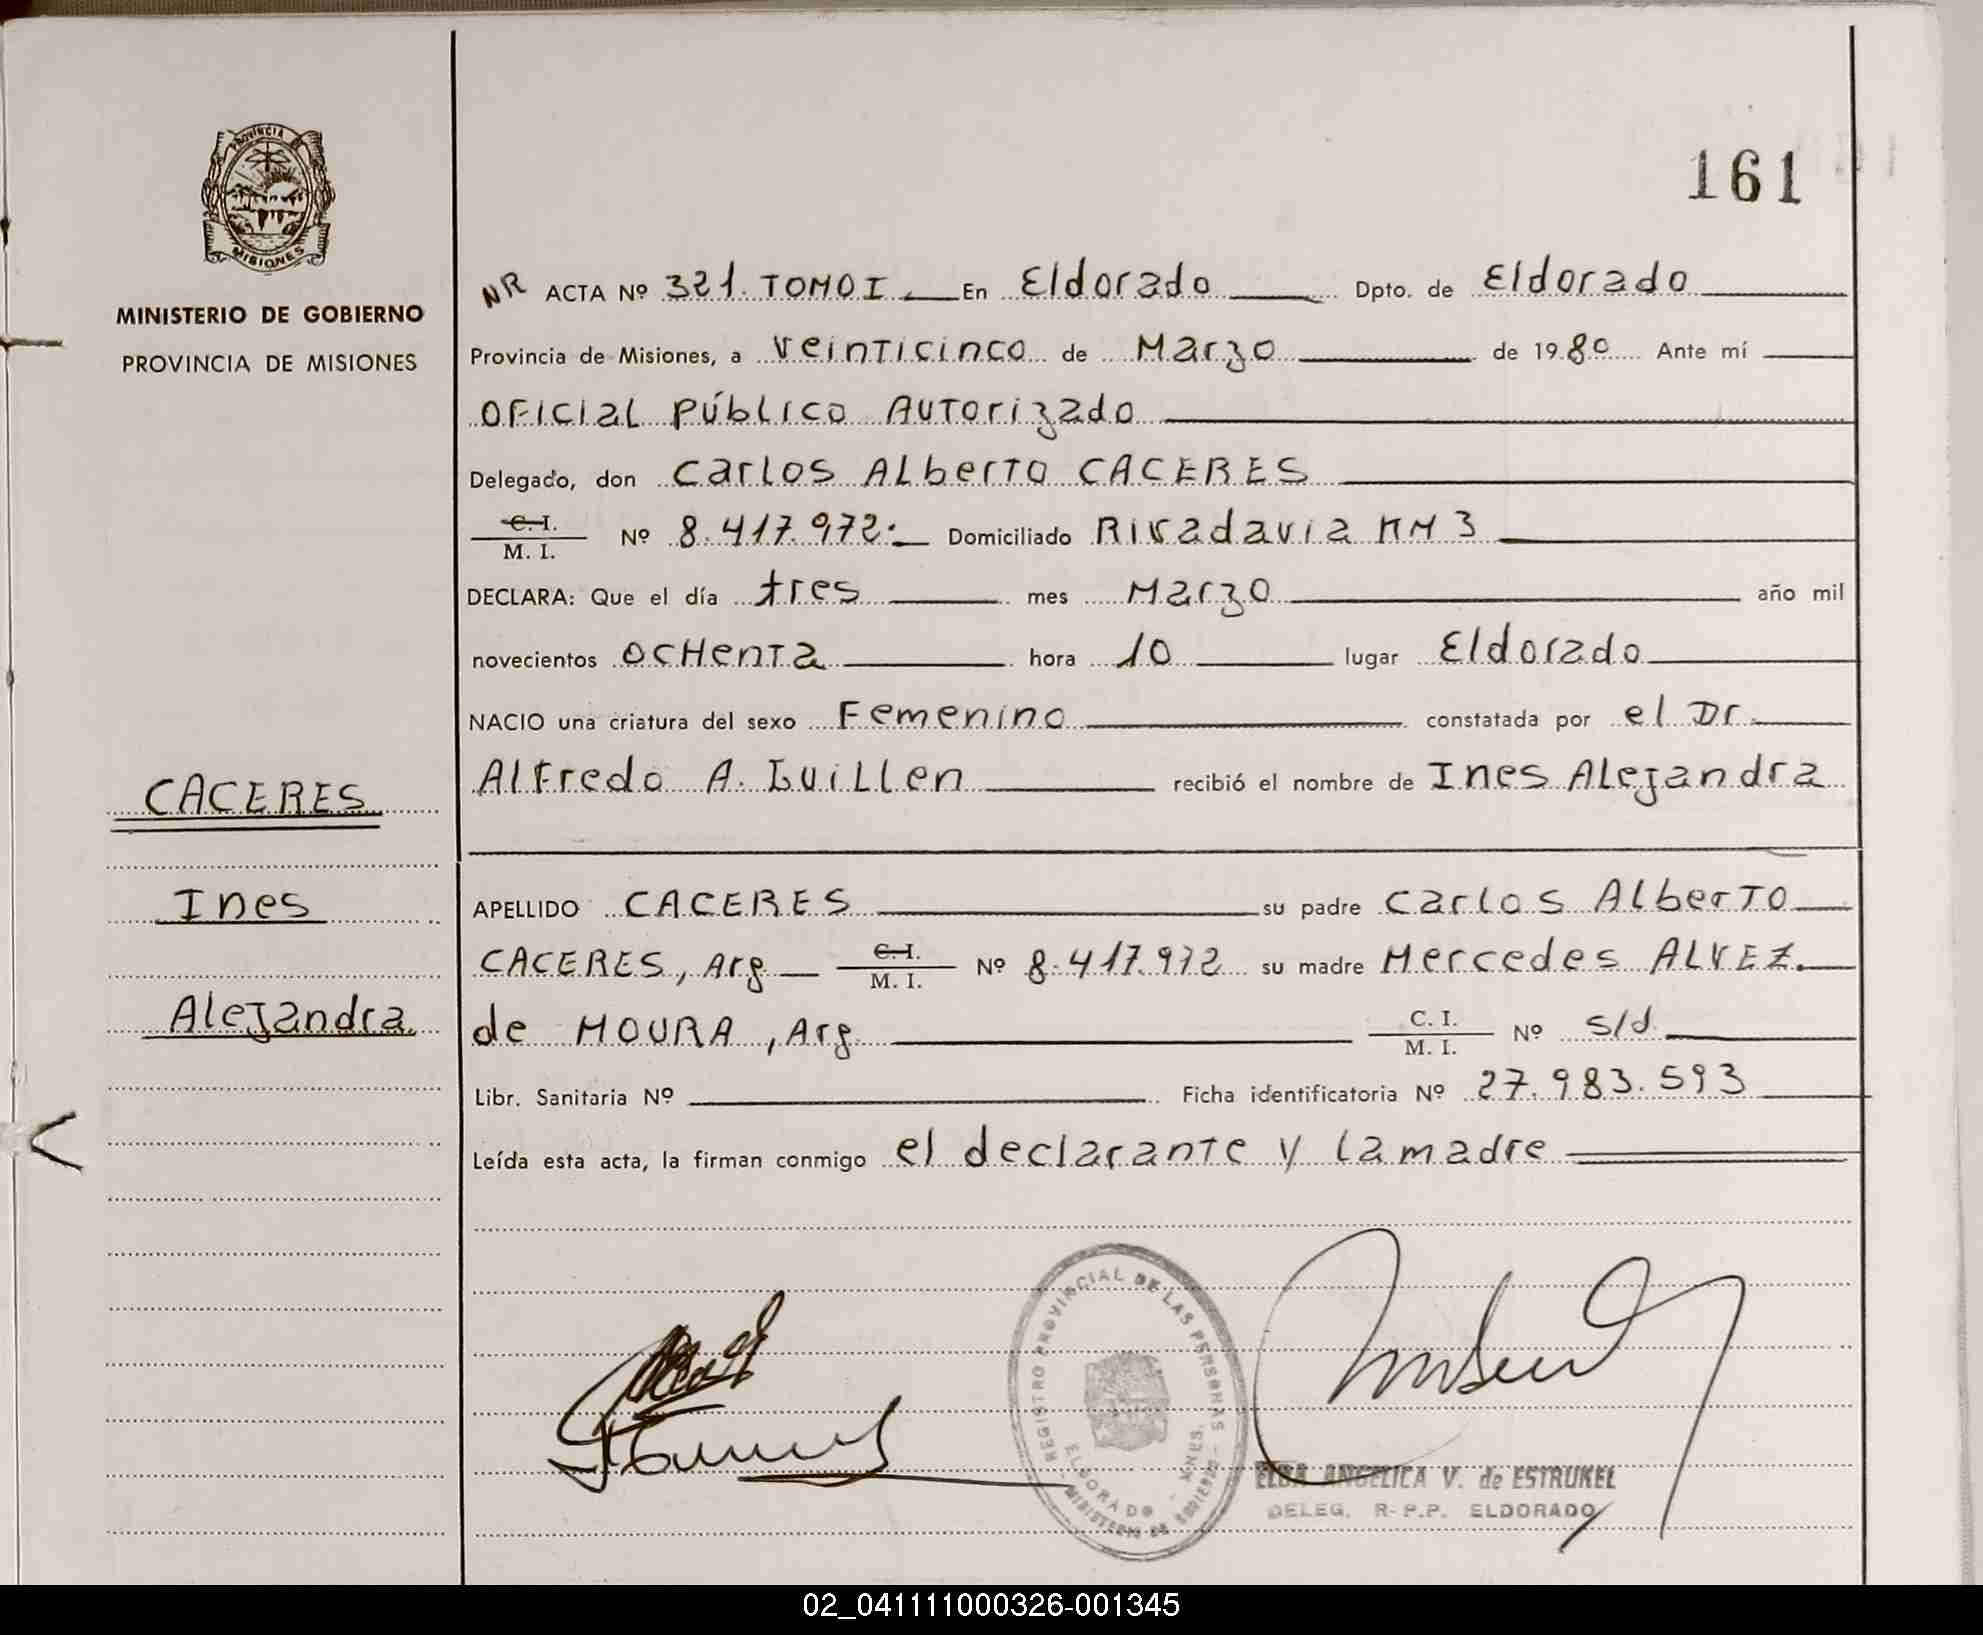 161
PROVINCIA DE
MISIONES
MINISTERIO DE GOBIERNO
PROVINCIA DE MISIONES
NR ACTA Nº 321. TOMO I En Eldorado Dpto. de Eldorado
Provincia de Misiones, a veinticinco de Marzo de 1980 Ante mí
Oficial Público Autorizado
Delegado, don Carlos Alberto CACERES
C. I. / M. I. Nº 8.417.972. Domiciliado Rivadavia KM 3
DECLARA: Que el día tres mes Marzo año mil
novecientos ochenta hora 10 lugar Eldorado
NACIO una criatura del sexo Femenino constatada por el Dr.
Alfredo A. Guillen recibió el nombre de Ines Alejandra
CACERES
Ines
Alejandra
APELLIDO CACERES su padre Carlos Alberto
CACERES, Arg C. I. / M. I. Nº 8.417.972 su madre Mercedes ALVEZ
de MOURA, Arg. C. I. / M. I. Nº s/d
Libr. Sanitaria Nº Ficha identificatoria Nº 27.983.593
Leída esta acta, la firman conmigo el declarante y la madre
REGISTRO PROVINCIAL DE LAS PERSONAS
ELDORADO - MNES.
MINISTERIO DE GOBIERNO
ELBA ANGELICA V. de ESTRUKEL
DELEG. R-P.P. ELDORADO
02_041111000326-001345